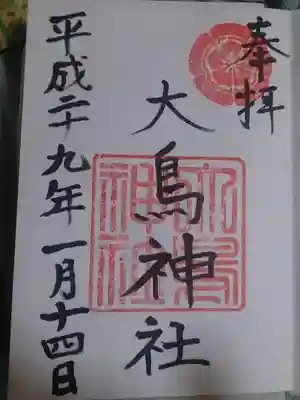 奉拝
大鳥神社
平成二十九年一月十四日
大鳥神社